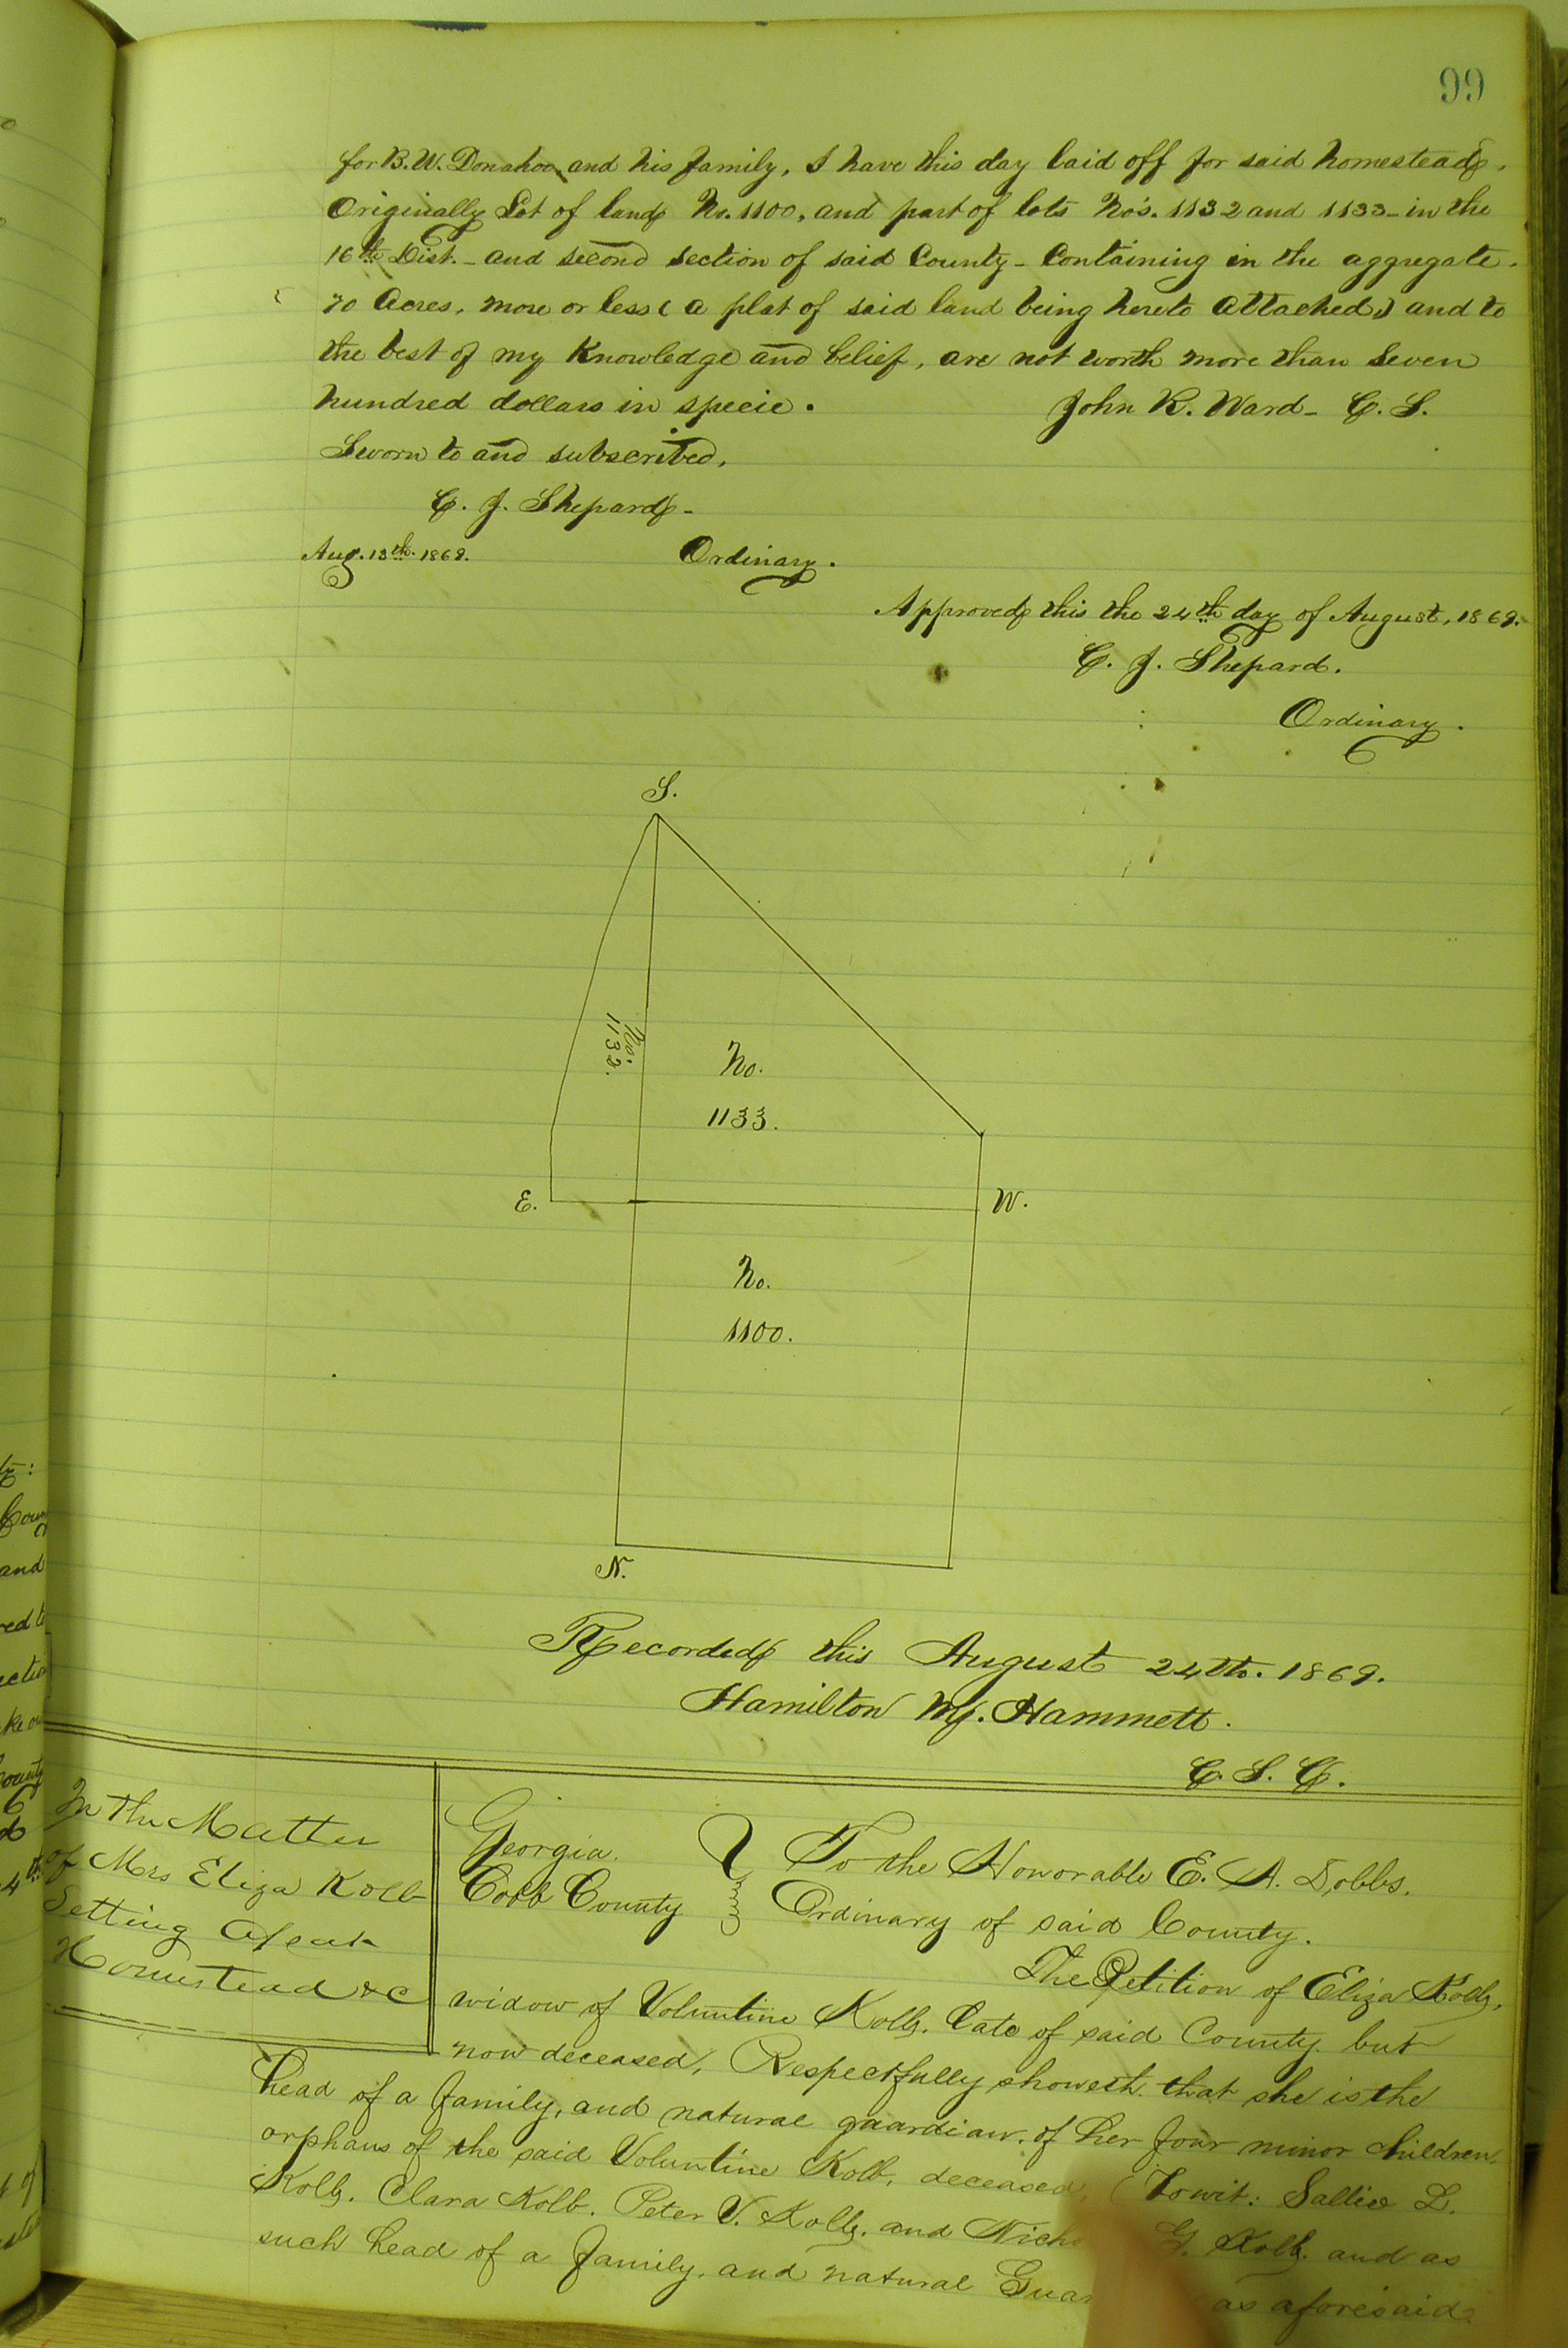 99
for B. W. Donahoo and his family, I have this day laid off for said homestead,
Originally Lot of land No. 1100, and part of lots No's. 1132 and 1133 - in the
16th Dist. - and second section of said County - Containing in the aggregate.
70 Acres, more or less ( a plat of said land being hereto attached,) and to
the best of my Knowledge and belief, are not worth more than Seven
hundred dollars in specie. John R. Ward - C. S.
Sworn to and subscribed,
C. J. Shepard -
Aug. 13th. 1869. Ordinary.
Approved this the 24th day of August, 1869.
C. J. Shepard.
Ordinary.
S.
No. 1132.
No.
1133.
E. W.
No.
1100.
N.
Recorded this August 24th. 1869.
Hamilton M. Hammett.
C. S. C.
In the Matter
of Mrs Eliza Kolb
Setting Apart
Homestead &c
Georgia. To the Honorable E. A. Dobbs.
Cobb County Ordinary of said County.
The Petition of Eliza Kolb,
widow of Voluntine Kolb. late of said County but
now deceased, Respectfully showeth that she is the
head of a family, and natural guardian. of her four minor children.
orphans of the said Voluntine Kolb, deceased, (Towit: Sallie L.
Kolb. Clara Kolb. Peter V. Kolb. and G. Kolb. and as
such head of a family. and natural as aforesaid